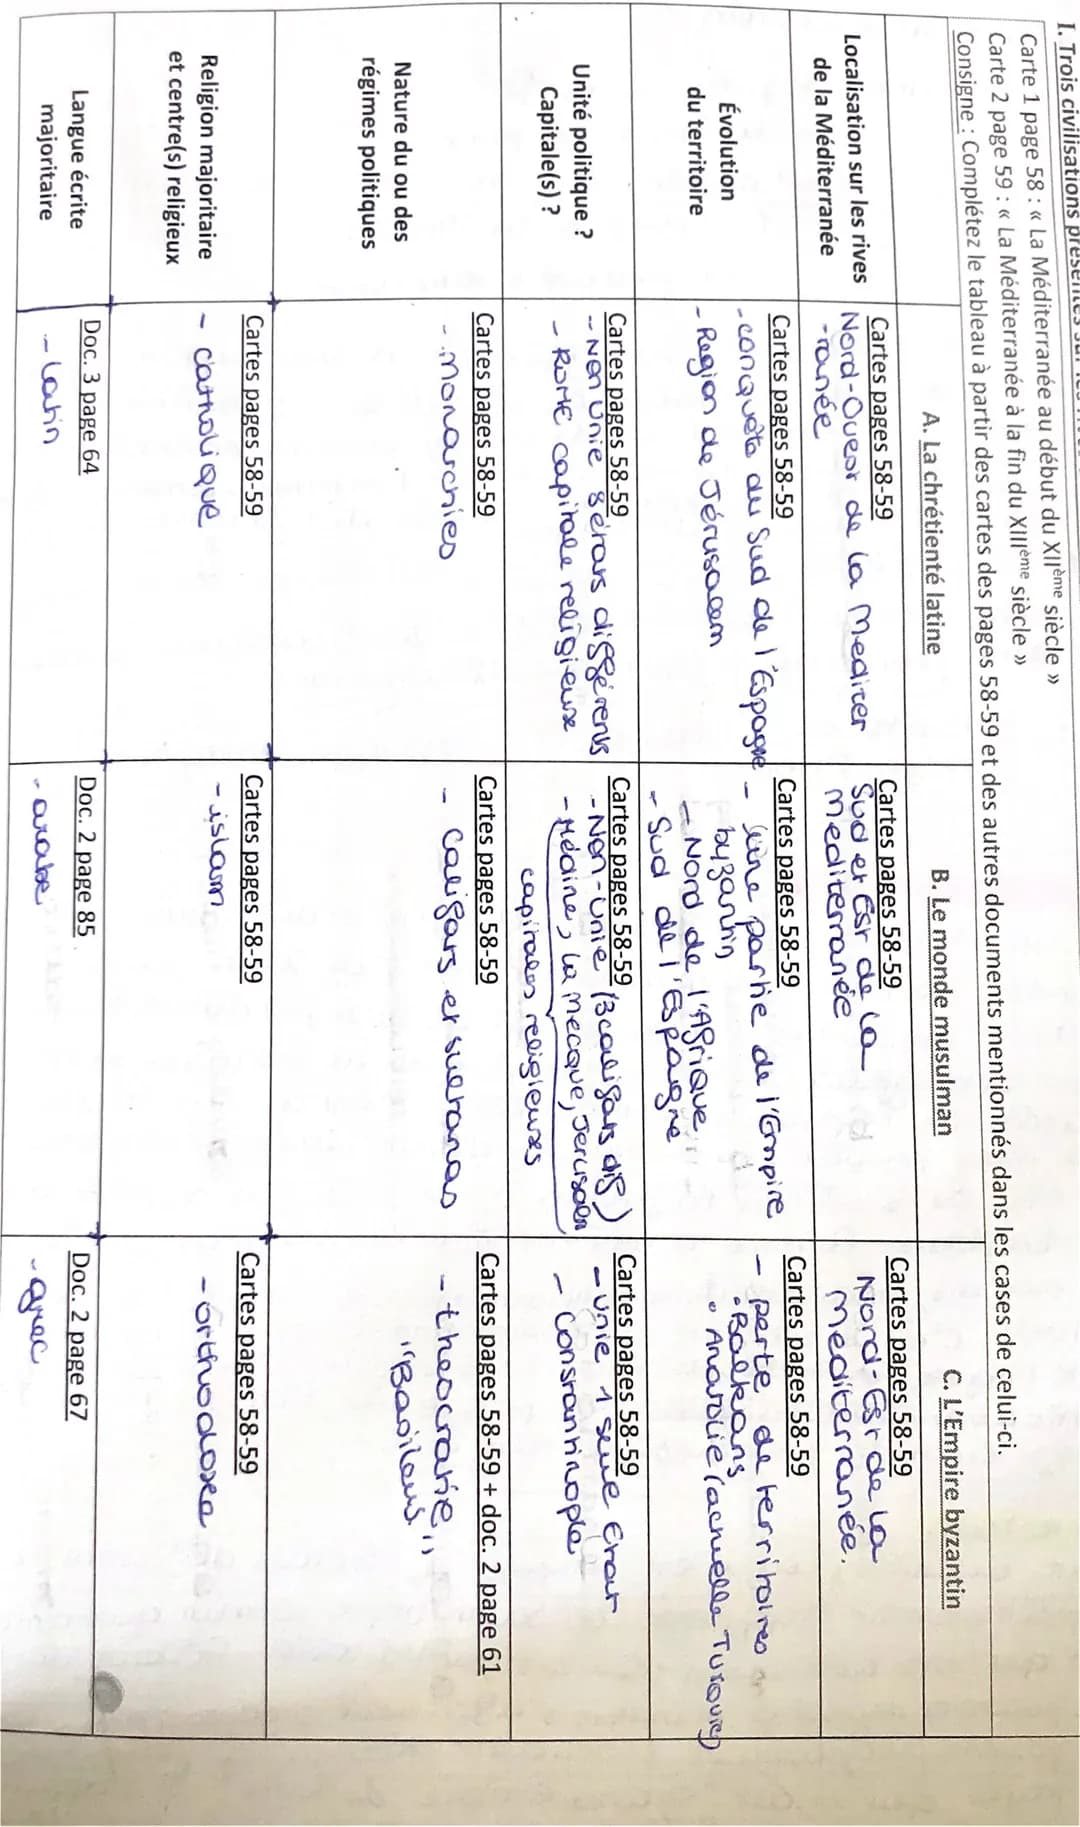 I. Trois civilisations présentes sur les
Carte 1 page 58 : « La Méditerranée au début du XIIème siècle »
Carte 2 page 59 : « La Méditerranée à la fin du XIIIème siècle »
Consigne : Complétez le tableau à partir des cartes des pages 58-59 et des autres documents mentionnés dans les cases de celui-ci.
A. La chrétienté latine
B. Le monde musulman
C. L'Empire byzantin
Localisation sur les rives
de la Méditerranée
Cartes pages 58-59
Nord-Ouest de la Mediter
-ranée
Cartes pages 58-59
Sud et Est de la
mediterranée
Cartes pages 58-59
Nord-Est de la
mediterranée.
Évolution
du territoire
Cartes pages 58-59
- conquête du Sud de l'Espagne
- Region de Jérusalem
Cartes pages 58-59
- une partie de l'Empire
byzantin
- Nord de l'Afrique
- Sud de l'Espagne
Cartes pages 58-59
- perte de territoires
• Balkans
• Anatolie (actuelle Turquie)
Unité politique ?
Capitale(s) ?
Cartes pages 58-59
- Non Unie états différents
- ROME capitale religieuse
Cartes pages 58-59
- Non-Unie (3 califats dif)
- Médine, la mecque, Jerusalem
capitales religieuses
Cartes pages 58-59
- unie 1 seule Etat
- Constantinople
Nature du ou des
régimes politiques
Cartes pages 58-59
- monarchies
Cartes pages 58-59
- califats et sultanas
Cartes pages 58-59 + doc. 2 page 61
- theocratie
"Basileus"
Religion majoritaire
et centre(s) religieux
Cartes pages 58-59
- catholique
Cartes pages 58-59
- islam
Cartes pages 58-59
- orthodoxe
Langue écrite
majoritaire
Doc. 3 page 64
- Latin
Doc. 2 page 85
- arabe
Doc. 2 page 67
- grec